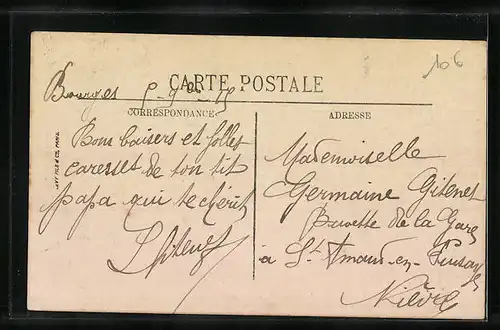 106
CARTE POSTALE
Bourges
CORRESPONDANCE
ADRESSE
Bons baisers et folles
caresses de ton tit
papa qui te chérit
Mademoiselle
Germaine Gitenet
Buvette de la Gare
à St Amand-en-Puisaye
Nièvre